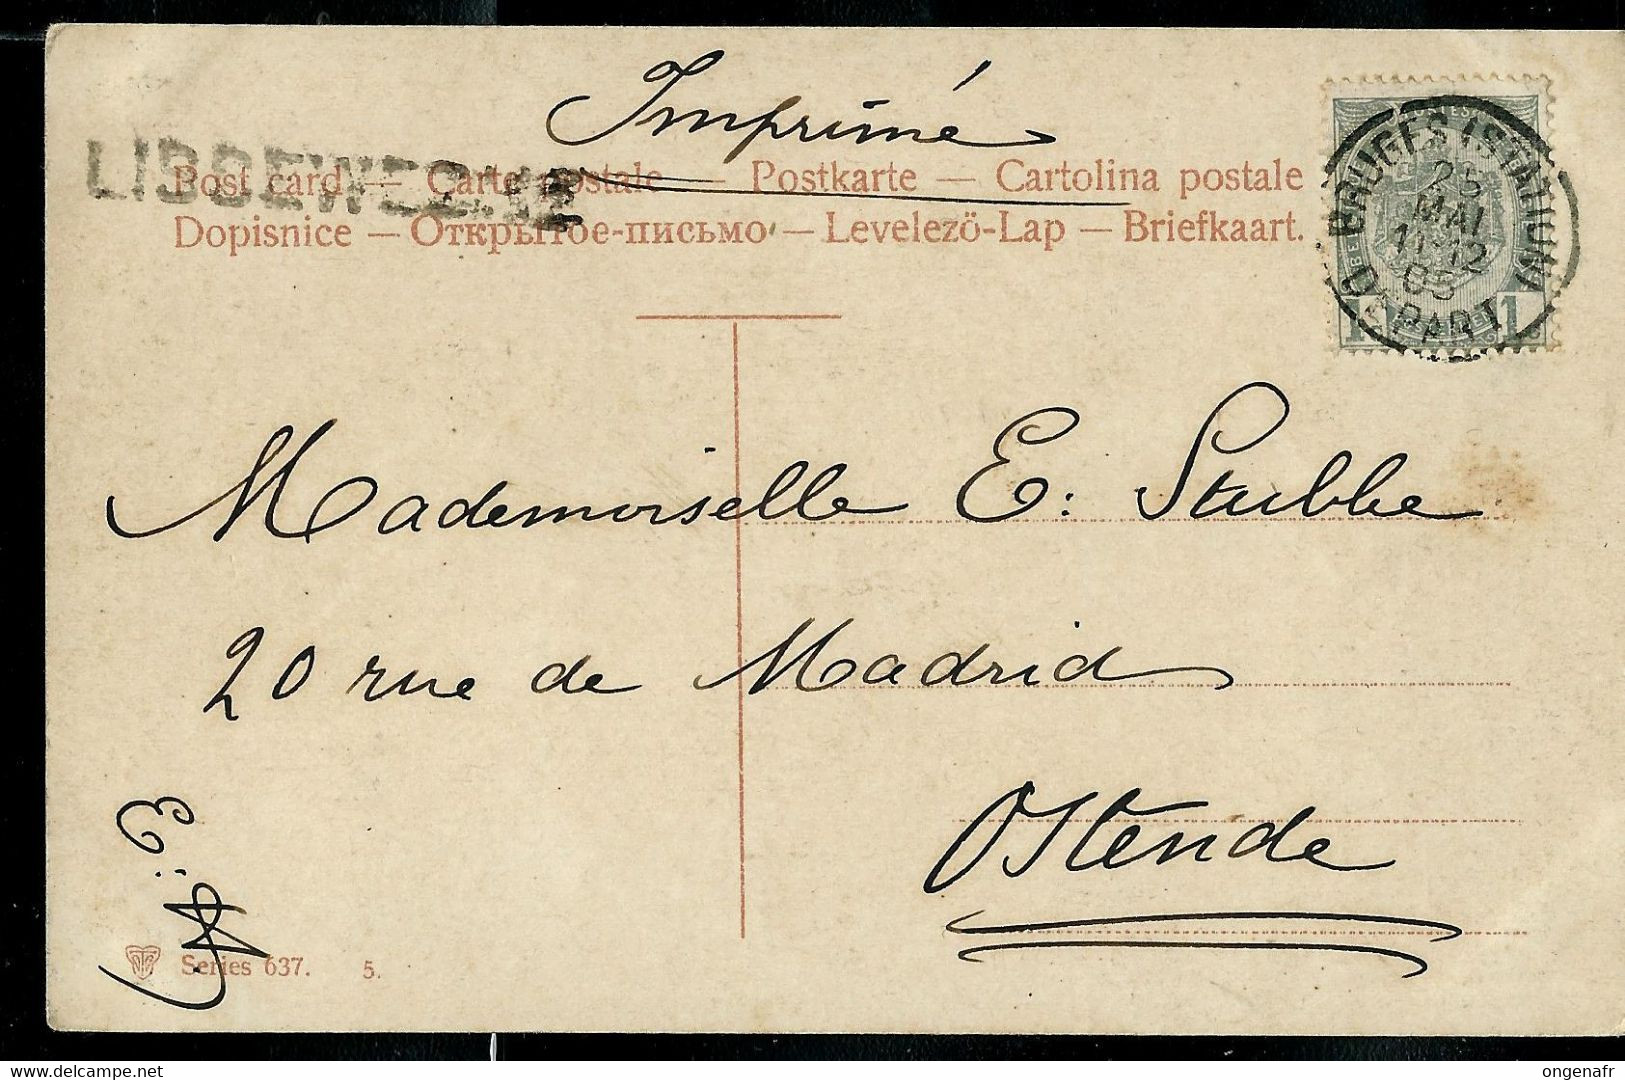 Imprimé
LISSEWEGHE
Post card — Carte postale — Postkarte — Cartolina postale
Dopisnice — Открытое-письмо — Levelezö-Lap — Briefkaart.
BRUGES (STATION)
25
MAI
11-12
DEPART
1 1
Mademoiselle E. Stubbe
20 rue de Madrid
Ostende
E. A
Series 637. 5.
delcampe.net
ongenafr